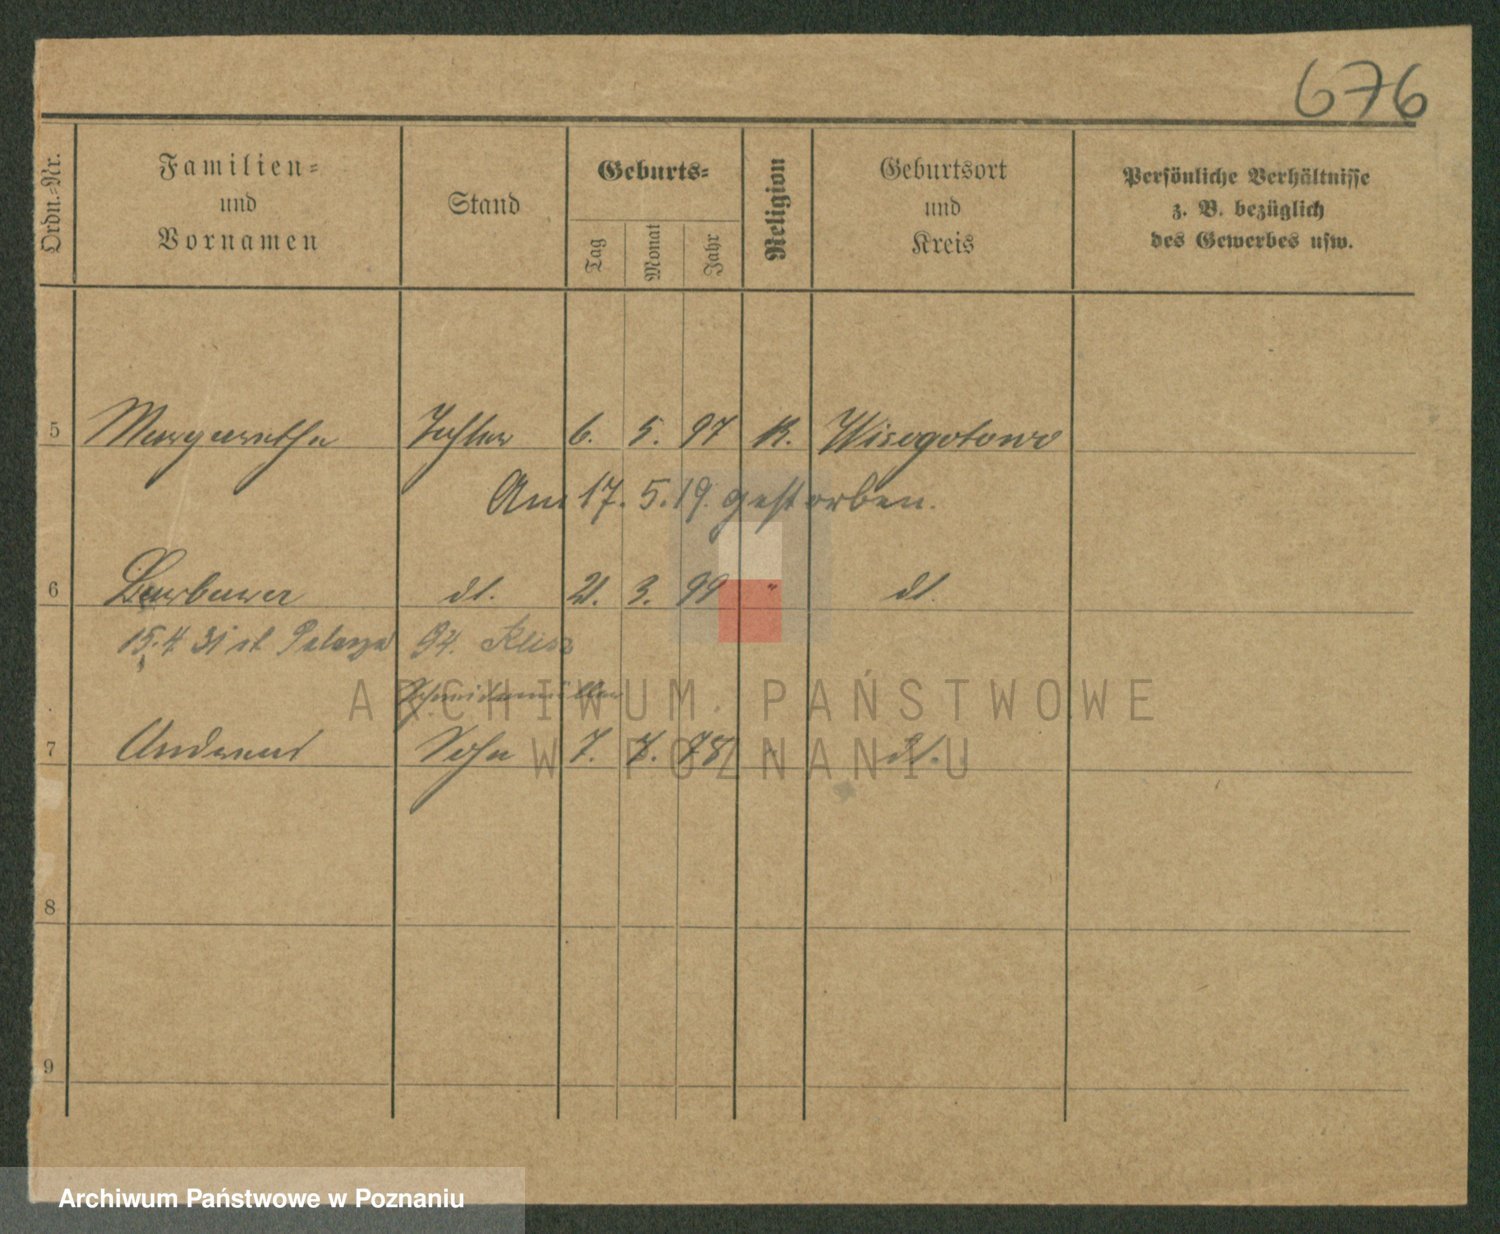 676
Ordn.=Nr.
Familien=
und
Vornamen
Stand
Geburts=
Tag
Monat
Jahr
Religion
Geburtsort
und
Kreis
Persönliche Verhältnisse
z. B. bezüglich
des Gewerbes usw.
5 Margarethe Tochter 6. 5. 97 K. Wisogotowo
Am 17. 5. 19. gestorben.
6 Barbara dt. 21. 3. 99 " dt.
15.4 31
Schneidemüller
7 Andreas Sohn 7. dt.
8
9
ARCHIWUM PAŃSTWOWE
W POZNANIU
Archiwum Państwowe w Poznaniu